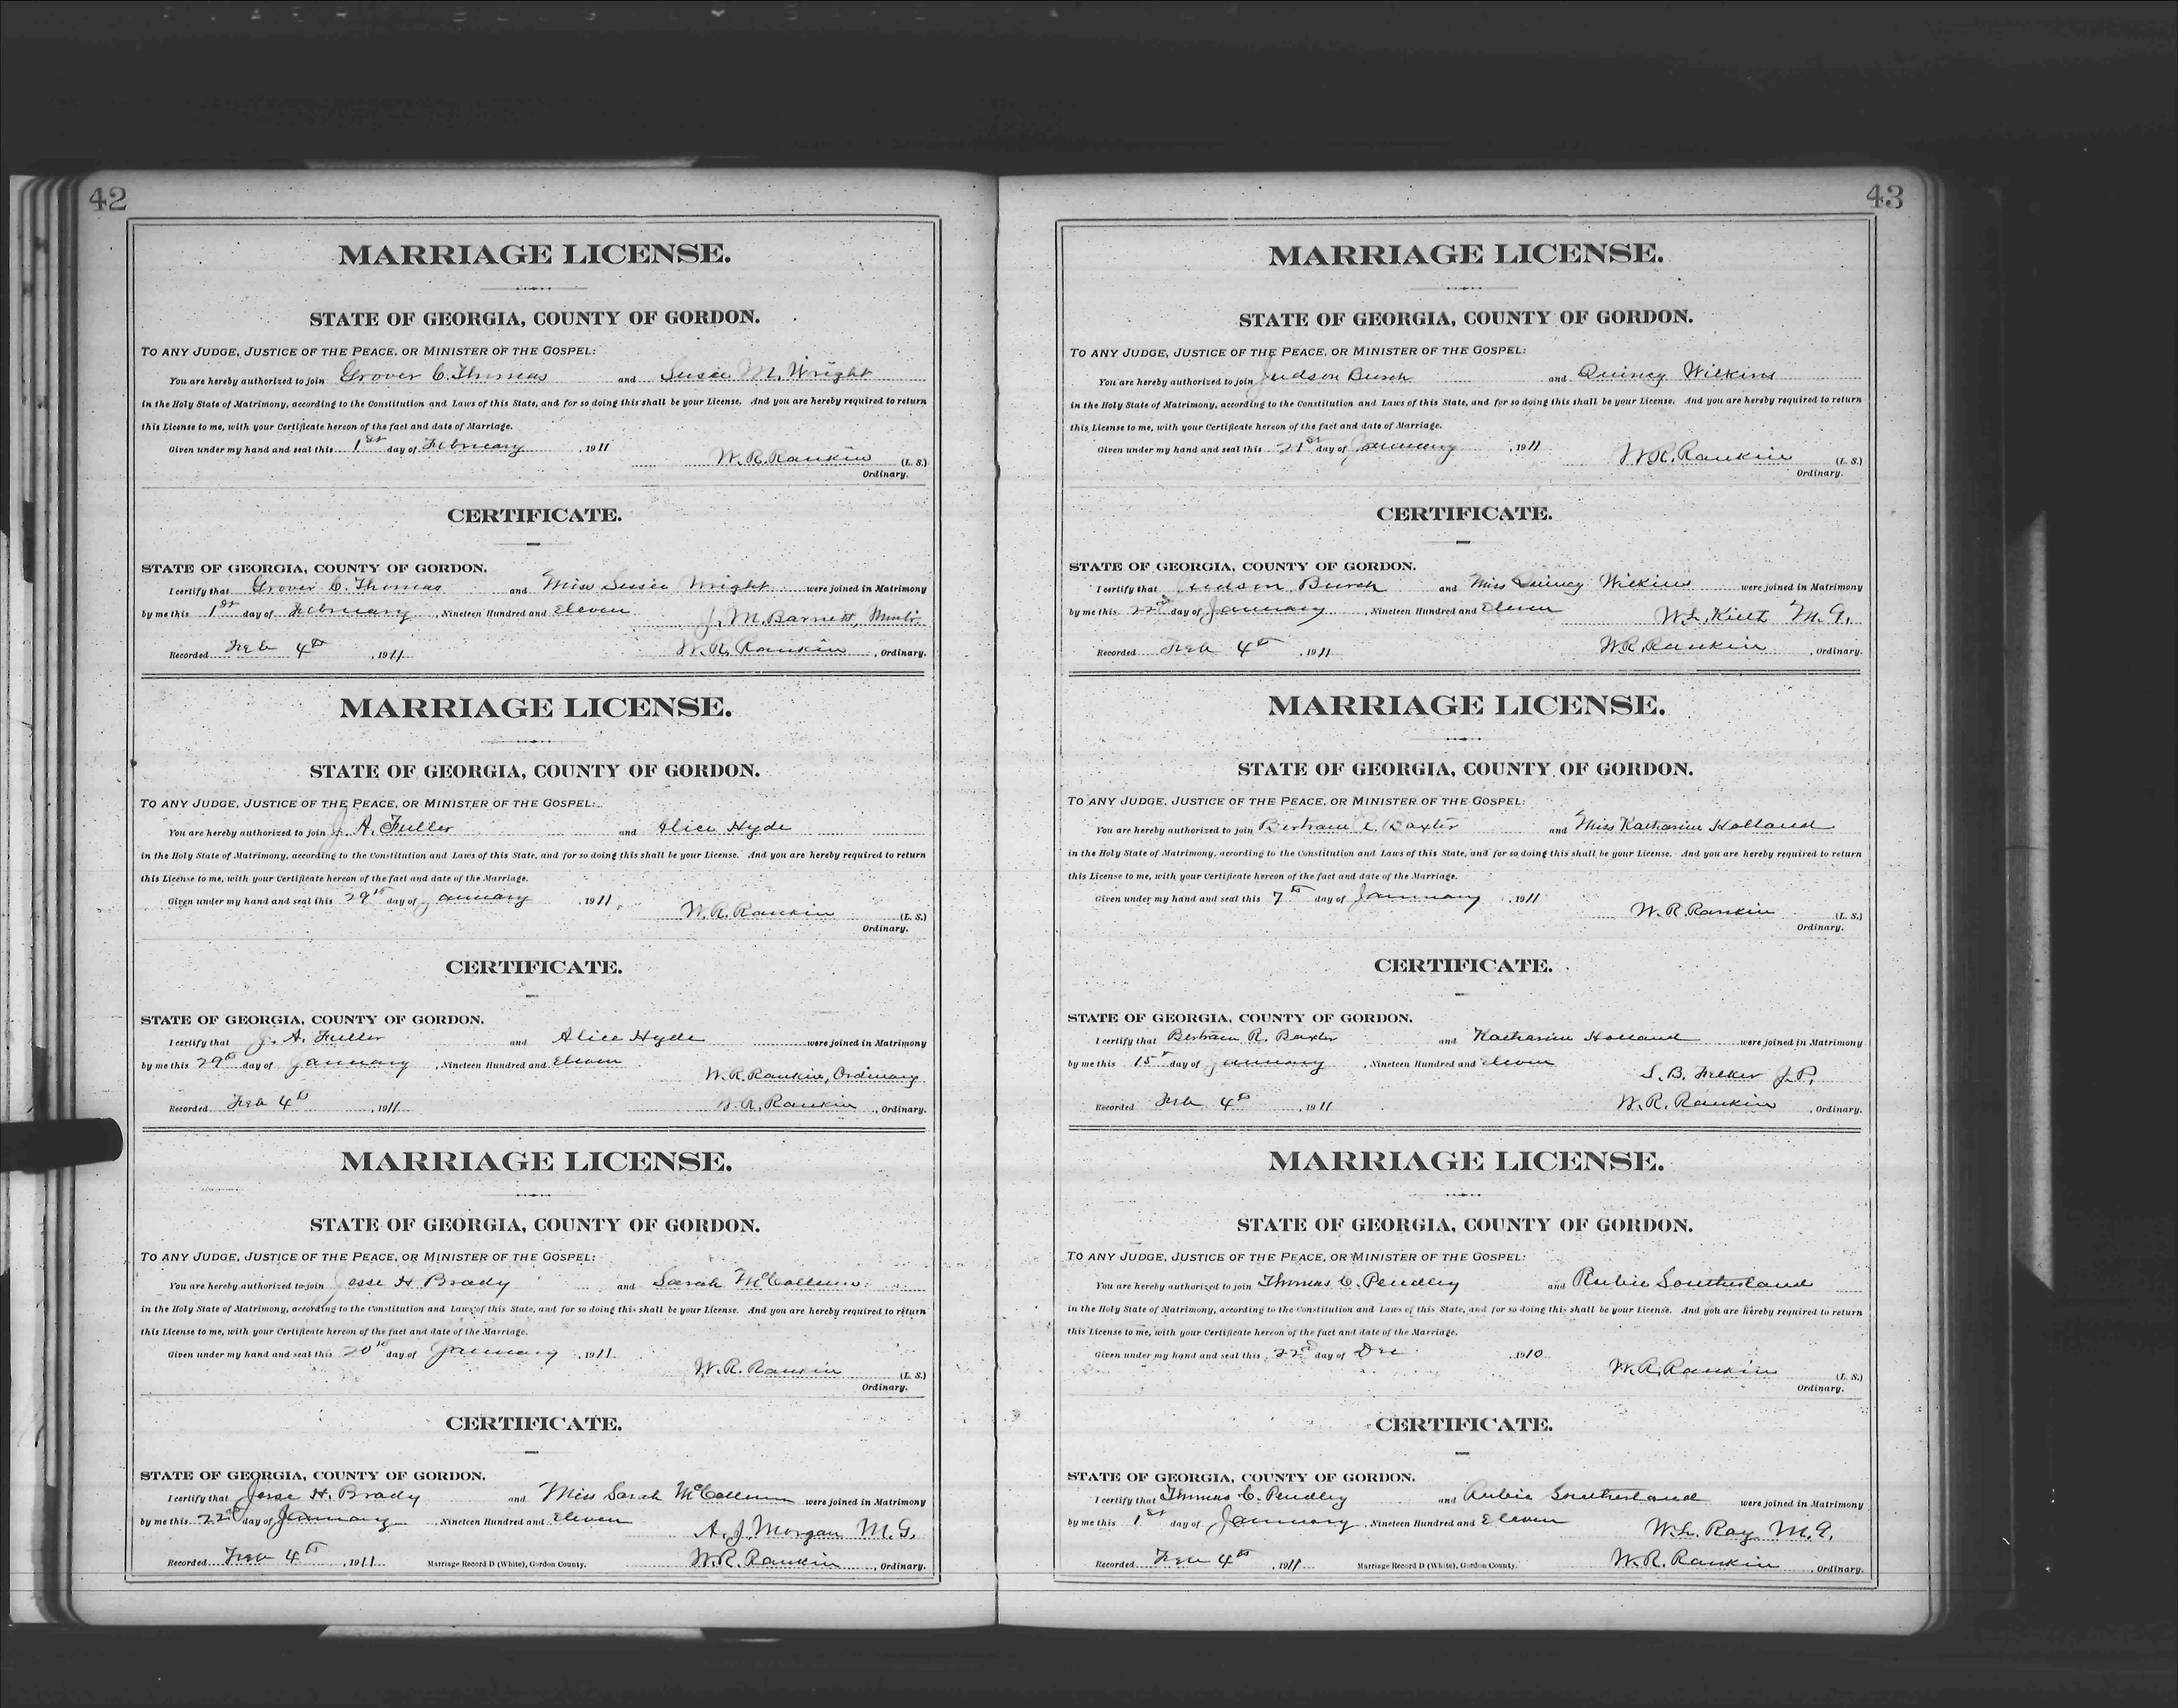 42
MARRIAGE LICENSE.
STATE OF GEORGIA, COUNTY OF GORDON.
TO ANY JUDGE, JUSTICE OF THE PEACE, OR MINISTER OF THE GOSPEL:
You are hereby authorized to join Grover C. Thomas and Susie M. Wright
in the Holy State of Matrimony, according to the Constitution and Laws of this State, and for so doing this shall be your License. And you are hereby required to return
this License to me, with your Certificate hereon of the fact and date of Marriage.
Given under my hand and seal this 1st day of February, 1911
W. R. Rankin (L. S.)
Ordinary.
CERTIFICATE.
STATE OF GEORGIA, COUNTY OF GORDON.
I certify that Grover C. Thomas and Miss Susie Wright were joined in Matrimony
by me this 1st day of February, Nineteen Hundred and Eleven
J. M. Barnett,
Recorded Feb 4th, 1911 W. R. Rankin, Ordinary.
MARRIAGE LICENSE.
STATE OF GEORGIA, COUNTY OF GORDON.
TO ANY JUDGE, JUSTICE OF THE PEACE, OR MINISTER OF THE GOSPEL:
You are hereby authorized to join J. A. Fuller and Alice Hyde
in the Holy State of Matrimony, according to the Constitution and Laws of this State, and for so doing this shall be your License. And you are hereby required to return
this License to me, with your Certificate hereon of the fact and date of the Marriage.
Given under my hand and seal this 29th day of January, 1911
W. R. Rankin (L. S.)
Ordinary.
CERTIFICATE.
STATE OF GEORGIA, COUNTY OF GORDON.
I certify that J. A. Fuller and Alice Hyde were joined in Matrimony
by me this 29th day of January, Nineteen Hundred and Eleven
W. R. Rankin, Ordinary
Recorded Feb 4th, 1911 W. R. Rankin, Ordinary.
MARRIAGE LICENSE.
STATE OF GEORGIA, COUNTY OF GORDON.
TO ANY JUDGE, JUSTICE OF THE PEACE, OR MINISTER OF THE GOSPEL:
You are hereby authorized to join Jesse H Brady and Sarah McCollum
in the Holy State of Matrimony, according to the Constitution and Laws of this State, and for so doing this shall be your License. And you are hereby required to return
this License to me, with your Certificate hereon of the fact and date of the Marriage.
Given under my hand and seal this 20th day of January, 1911
W. R. Rankin (L. S.)
Ordinary.
CERTIFICATE.
STATE OF GEORGIA, COUNTY OF GORDON.
I certify that Jesse H. Brady and Miss Sarah McCollum were joined in Matrimony
by me this 22nd day of January, Nineteen Hundred and Eleven
A. J. Morgan M. G.
Recorded Feb 4th, 1911 Marriage Record D (White), Gordon County. W. R. Rankin, Ordinary.
43
MARRIAGE LICENSE.
STATE OF GEORGIA, COUNTY OF GORDON.
TO ANY JUDGE, JUSTICE OF THE PEACE, OR MINISTER OF THE GOSPEL:
You are hereby authorized to join Judson Burch and Quincy Wilkins
in the Holy State of Matrimony, according to the Constitution and Laws of this State, and for so doing this shall be your License. And you are hereby required to return
this License to me, with your Certificate hereon of the fact and date of Marriage.
Given under my hand and seal this 21st day of January, 1911
W. R. Rankin (L. S.)
Ordinary.
CERTIFICATE.
STATE OF GEORGIA, COUNTY OF GORDON.
I certify that Judson Burch and Miss Quincy Wilkins were joined in Matrimony
by me this 22nd day of January, Nineteen Hundred and Eleven
W. L. Kieth M. G.
Recorded Feb 4th, 1911 W. R. Rankin, Ordinary.
MARRIAGE LICENSE.
STATE OF GEORGIA, COUNTY OF GORDON.
TO ANY JUDGE, JUSTICE OF THE PEACE, OR MINISTER OF THE GOSPEL:
You are hereby authorized to join Bertram Baxter and Miss Katharine Holland
in the Holy State of Matrimony, according to the Constitution and Laws of this State, and for so doing this shall be your License. And you are hereby required to return
this License to me, with your Certificate hereon of the fact and date of the Marriage.
Given under my hand and seal this 7th day of January, 1911
W. R. Rankin (L. S.)
Ordinary.
CERTIFICATE.
STATE OF GEORGIA, COUNTY OF GORDON.
I certify that Bertram R. Baxter and Katharine Holland were joined in Matrimony
by me this 15th day of January, Nineteen Hundred and eleven
S. B. Felker J. P.
Recorded Feb 4th, 1911 W. R. Rankin, Ordinary.
MARRIAGE LICENSE.
STATE OF GEORGIA, COUNTY OF GORDON.
TO ANY JUDGE, JUSTICE OF THE PEACE, OR MINISTER OF THE GOSPEL:
You are hereby authorized to join Thomas C. Pendley and Rubie Southerland
in the Holy State of Matrimony, according to the Constitution and Laws of this State, and for so doing this shall be your License. And you are hereby required to return
this License to me, with your Certificate hereon of the fact and date of the Marriage.
Given under my hand and seal this 22nd day of Dec, 1910
W. R. Rankin (L. S.)
Ordinary.
CERTIFICATE.
STATE OF GEORGIA, COUNTY OF GORDON.
I certify that Thomas C. Pendley and Rubie Southerland were joined in Matrimony
by me this 1st day of January, Nineteen Hundred and Eleven
W. L. Ray M. G.
Recorded Feb 4th, 1911 Marriage Record D (White), Gordon County. W. R. Rankin, Ordinary.